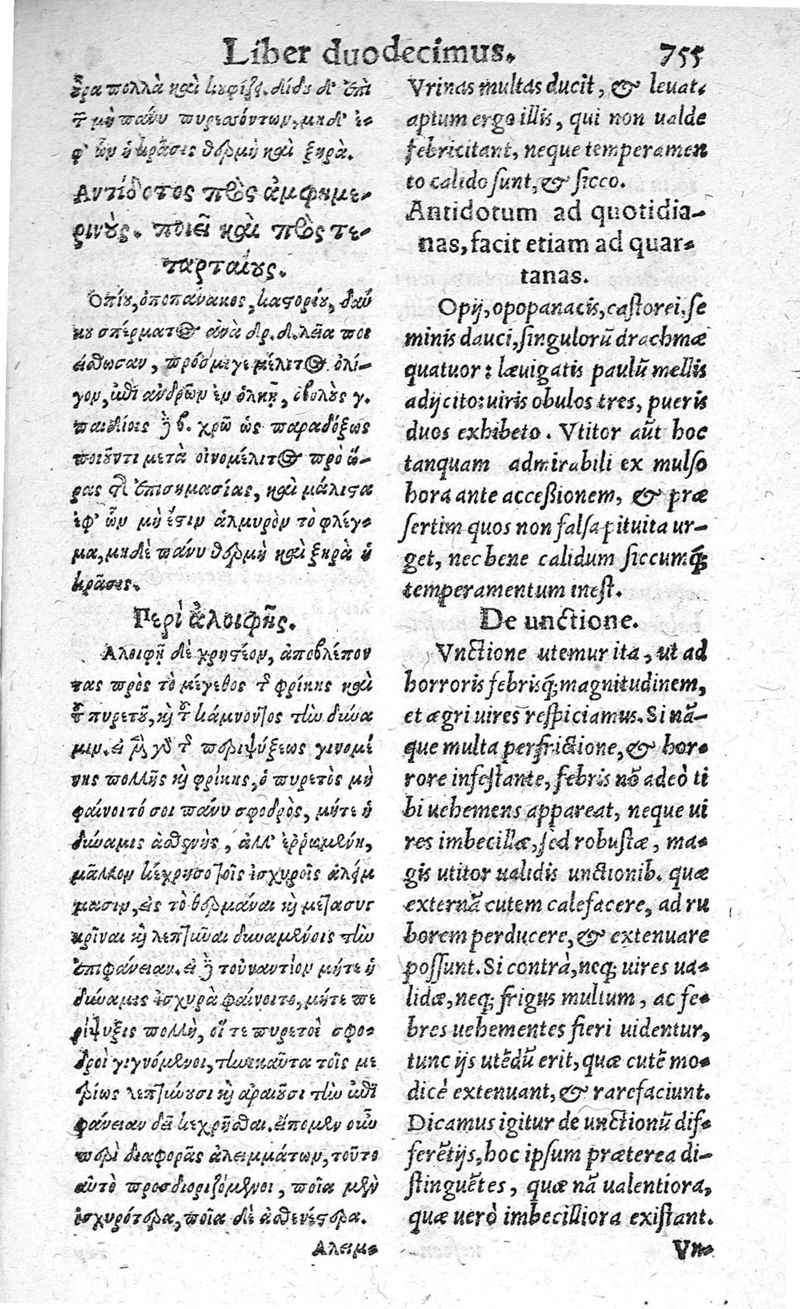 Liber duodecimus. 755
ὖρα πολλὰ καὶ κυφίζει. δίδυ δ' ἐπὶ
τ μὴ πάνυ πυρεσσόντων, μηδ' ἐ-
φ' ὧν ἡ κρᾶσις θερμὴ καὶ ξηρά.
Ἀντίδοτος πρὸς ἀμφημε-
ρινούς. ποιεῖ καὶ πρὸς τε-
ταρταίους.
Ὀπίου, ὀποπάνακος, καστορίου, δαύ
κου σπέρματος ἀνὰ δρ. δ. λεῖα ποι
είσθωσαν, πρόσμιγε μέλιτος ὀλί-
γον, δίδου ἀνδρῶν ἐν ὁλκῇ, ὀβολοὺς γ.
παιδίοις ἢ β. χρῶ ὡς παραδόξως
ποιοῦντι μετὰ οἰνομέλιτος πρὸ ὥ-
ρας τῆς ἐπισημασίας, καὶ μάλιστα
ἐφ' ὧν μὴ ἔστιν ἁλμυρὸν τὸ φλέγ-
μα, μηδὲ πάνυ θερμὴ καὶ ξηρὰ ἡ
κρᾶσις.
Περὶ ἀλοιφῆς.
Ἀλοιφῇ δὲ χρηστέον, ἀποβλέπον
τας πρὸς τὸ μέγεθος τῆς φρίκης καὶ
τοῦ πυρετοῦ, καὶ τοῦ κάμνοντος τὴν δύνα
μιν. εἰ μὲν γὰρ τῆς περιψύξεως γινομέ
νης πολλῆς καὶ φρίκης, ὁ πυρετὸς μὴ
φαίνοιτό σοι πάνυ σφοδρός, μήτε ἡ
δύναμις ἀσθενής, ἀλλ' ἐρρωμένη,
μᾶλλον κέχρησο τοῖς ἰσχυροῖς ἀλείμ
μασιν, εἰς τὸ θερμᾶναι καὶ μετασυγ
κρῖναι καὶ λεπτῦναι δυναμένοις τὴν
ἐπιφάνειαν. εἰ δὲ τοὐναντίον μήτε ἡ
δύναμις ἰσχυρὰ φαίνοιτο, μήτε πε
ρίψυξις πολλή, οἵ τε πυρετοὶ σφο-
δροὶ γιγνόμενοι, τηνικαῦτα τοῖς με
τρίως λεπτύνουσι καὶ ἀραιοῦσι τὴν ἐπι
φάνειαν δεῖ κεχρῆσθαι. εἴπομεν οὖν
περὶ διαφορᾶς ἀλειμμάτων, τοῦτο
αὐτὸ προσδιοριζόμενοι, ποῖα μὲν
ἰσχυρότερα, ποῖα δὲ ἀσθενέστερα.
Ἀλειμ-
Vrinas multas ducit, & leuat.
aptum ergo illis, qui non ualde
febricitant, neque temperamen
to calido sunt, & sicco.
Antidotum ad quotidia-
nas, facit etiam ad quar-
tanas.
Opij, opopanacis, castorei, se
minis dauci, singulorū drachmæ
quatuor: læuigatis paulū mellis
adijcito: uiris obulos tres, pueris
duos exhibeto. Vtitor aūt hoc
tanquam admirabili ex mulso
hora ante accessionem, & præ
sertim quos non falsa pituita ur-
get, nec bene calidum siccumq;
temperamentum inest.
De unctione.
Vnctione utemur ita, ut ad
horroris febrisq; magnitudinem,
et ægri uires respiciamus. Si nā-
que multa perfrictione, & hor-
rore infestante, febris nō adeò ti
bi uehemens appareat, neque ui
res imbecillæ, sed robustæ, ma-
gis utitor ualidis unctionib. quæ
externā cutem calefacere, ad ru
borem perducere, & extenuare
possunt. Si contrà, neq; uires ua-
lidæ, neq; frigus multum, ac fe-
bres uehementes fieri uidentur,
tunc ijs utēdū erit, quæ cutē mo-
dicè extenuant, & rarefaciunt.
Dicamus igitur de unctionū dif-
ferētijs, hoc ipsum præterea di-
stinguētes, quæ nā ualentiora,
quæ uerò imbecilliora existant.
Vn-